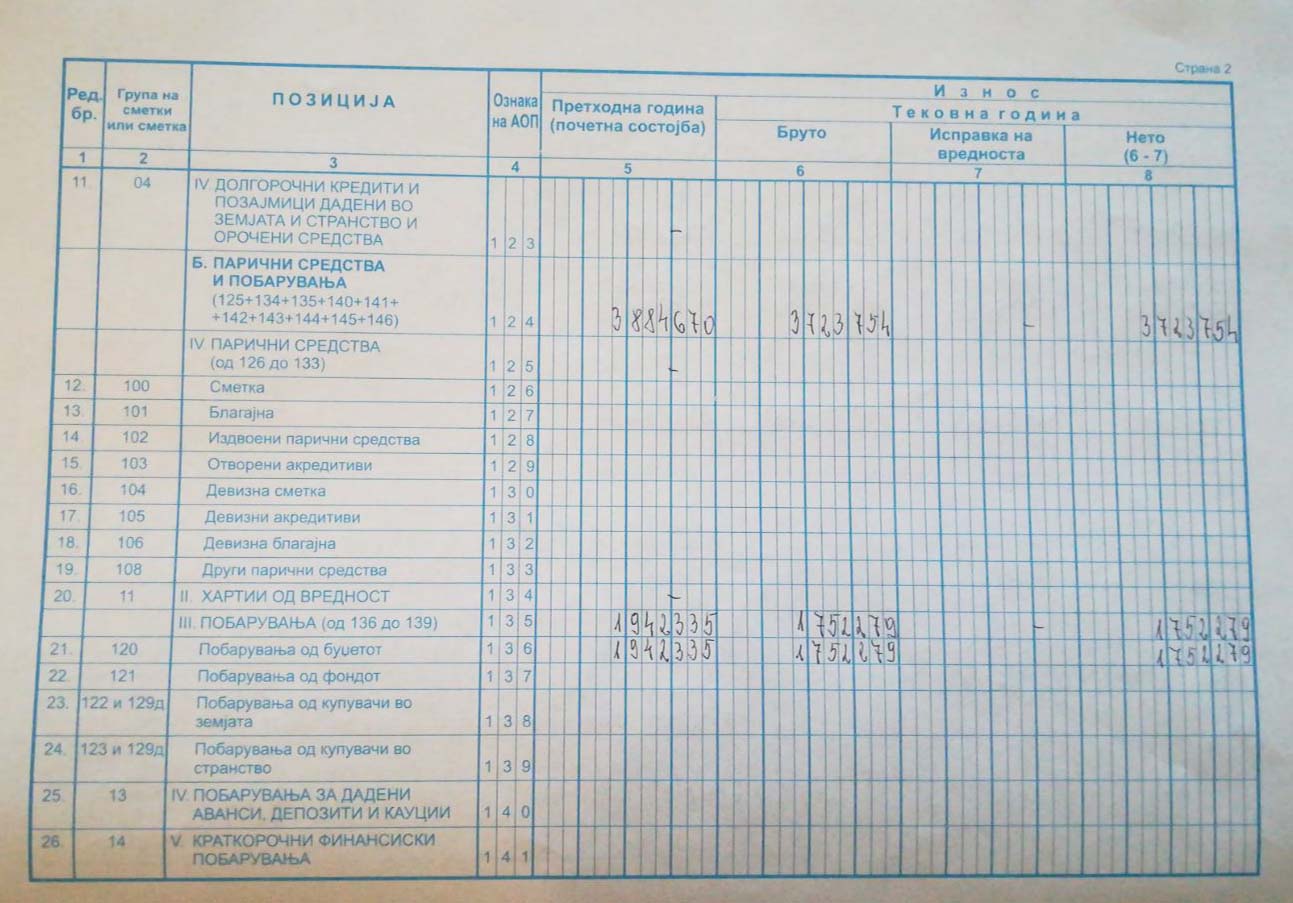 Страна 2
Ред. бр. Група на сметки или сметка ПОЗИЦИЈА Ознака на АОП Износ
Претходна година (почетна состојба) Тековна година
Бруто Исправка на вредноста Нето (6 - 7)
1 2 3 4 5 6 7 8
11. 04 IV. ДОЛГОРОЧНИ КРЕДИТИ И
ПОЗАЈМИЦИ ДАДЕНИ ВО
ЗЕМЈАТА И СТРАНСТВО И
ОРОЧЕНИ СРЕДСТВА 1 2 3 -
Б. ПАРИЧНИ СРЕДСТВА
И ПОБАРУВАЊА
(125+134+135+140+141+
+142+143+144+145+146) 1 2 4 3884670 3723754 - 3723754
IV. ПАРИЧНИ СРЕДСТВА
(од 126 до 133) 1 2 5 -
12. 100 Сметка 1 2 6
13. 101 Благајна 1 2 7
14 102 Издвоени парични средства 1 2 8
15. 103 Отворени акредитиви 1 2 9
16. 104 Девизна сметка 1 3 0
17. 105 Девизни акредитиви 1 3 1
18. 106 Девизна благајна 1 3 2
19. 108 Други парични средства 1 3 3
20. 11 II. ХАРТИИ ОД ВРЕДНОСТ 1 3 4 -
III. ПОБАРУВАЊА (од 136 до 139) 1 3 5 1942335 1752279 - 1752279
21. 120 Побарувања од буџетот 1 3 6 1942335 1752279 1752279
22. 121 Побарувања од фондот 1 3 7
23. 122 и 129д Побарувања од купувачи во
земјата 1 3 8
24. 123 и 129д Побарувања од купувачи во
странство 1 3 9
25. 13 IV. ПОБАРУВАЊА ЗА ДАДЕНИ
АВАНСИ, ДЕПОЗИТИ И КАУЦИИ 1 4 0
26. 14 V. КРАТКОРОЧНИ ФИНАНСИСКИ
ПОБАРУВАЊА 1 4 1